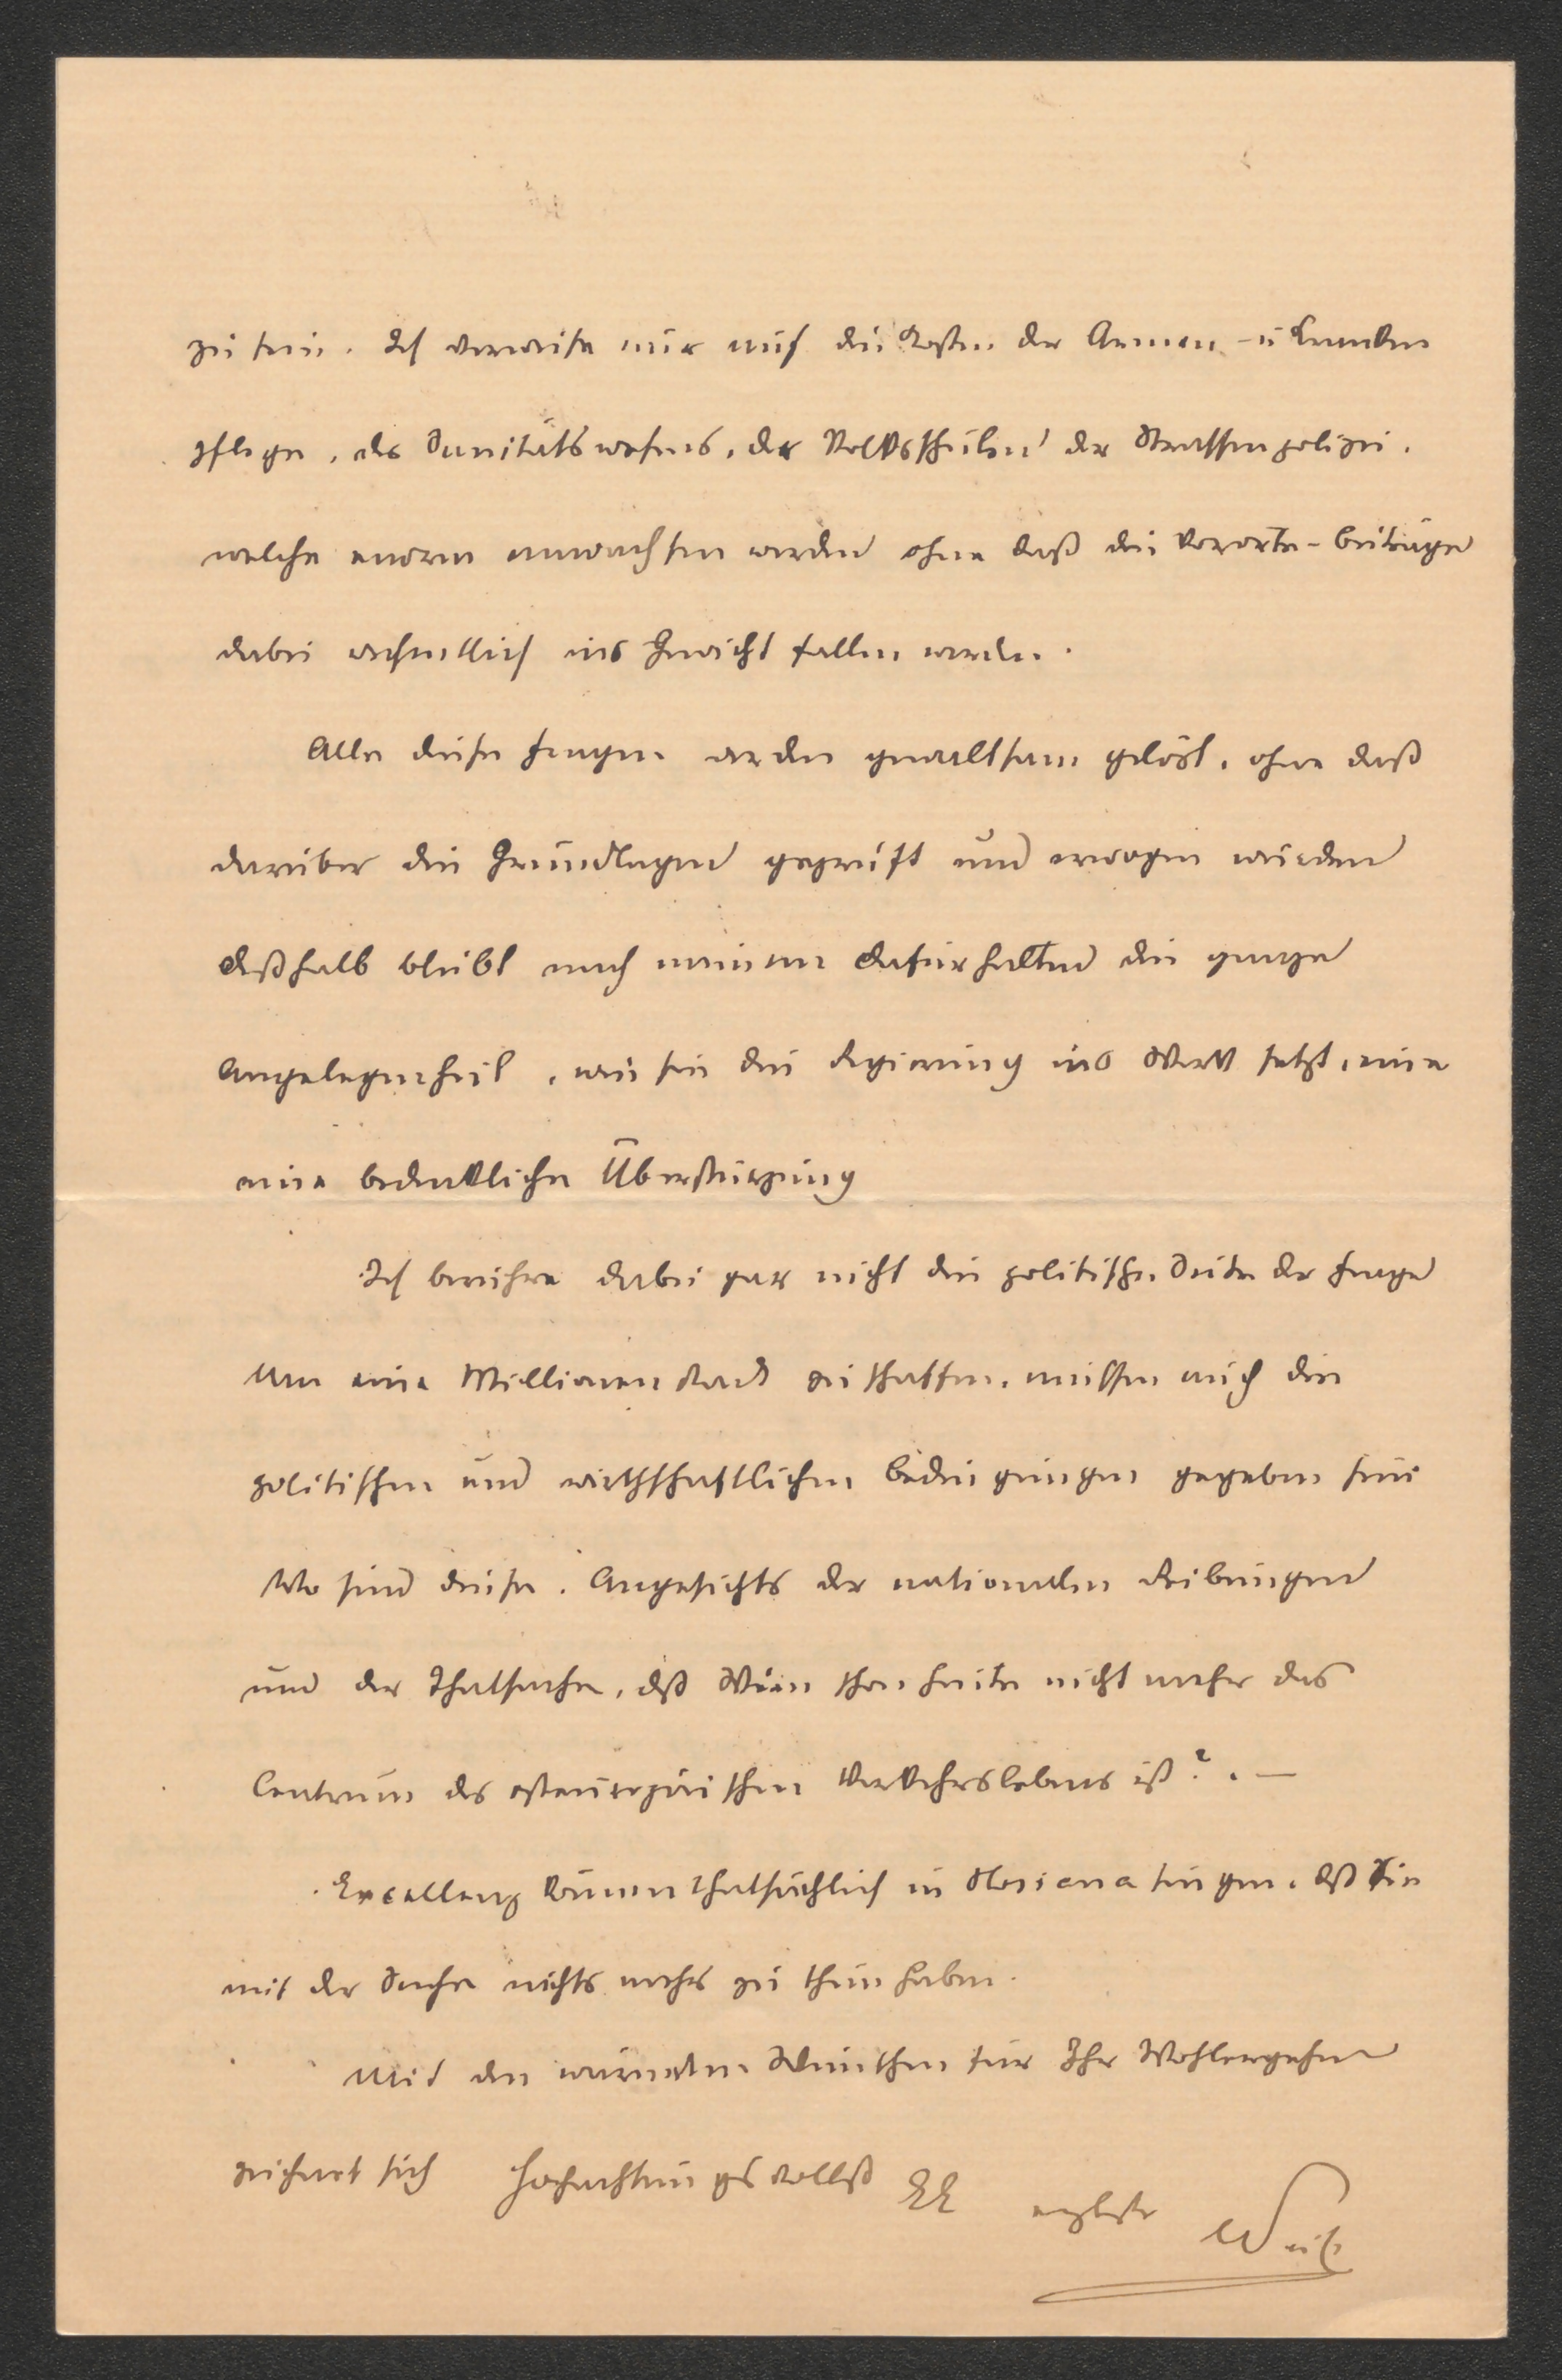 zu sein. Ich verweise nur auf die Kosten der Armen- u Kranken
pflege, des Sanitätswesens, der Volksschulen der Strassenpolizei,
welche enorm anwachsen werden ohne daß die Vororte-Beiträge
dabei wesentlich ins Gewicht fallen werden.
Alle diese Fragen werden gewaltsam gelöst, ohne daß
darüber die Grundlagen geprüft und erwogen würden
deßhalb bleibt nach meinem Dafürhalten die ganze
Angelegenheit, wie sie die Regierung ins Werk setzt, eine
eine bedenkliche Überstürzung
Ich berühre dabei gar nicht die politische Seite der Frage
Um eine Millionenstadt zu schaffen, müssen auch die
politischen und wirthschaftlichen Bedingungen gegeben sein
Wo sind diese. Angesichts der nationalen Reibungen
und der Thatsache, dß Wien schon heute nicht mehr das
Centrum des osteuropäischen Verkehrslebens ist? . —
Excellenz können thatsächlich in Hosiana singen, dß Sie
mit der Sache nichts mehr zu thun haben.
Mit den wärmsten Wünschen für Ihr Wohlergehen
zeichnet sich hochachtungsvollst EE